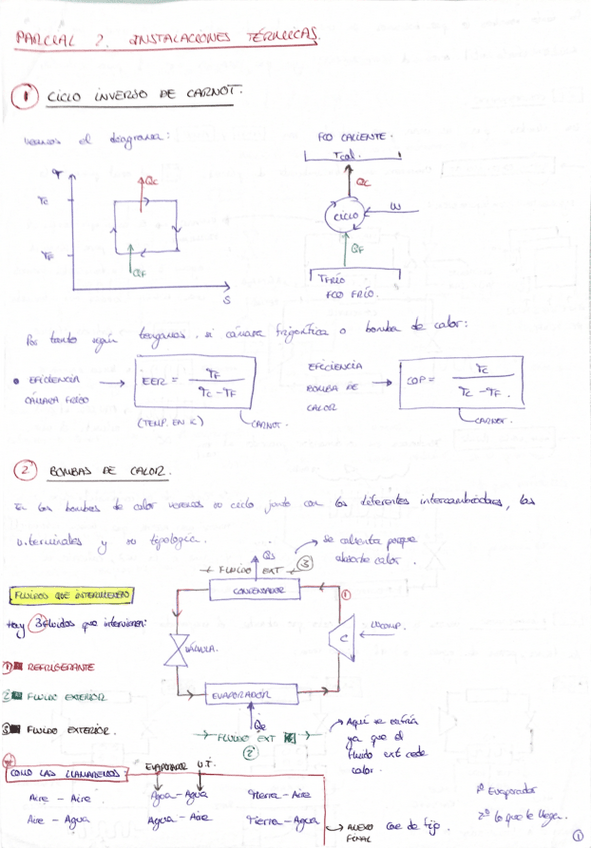 PARCIAL 2. INSTALACIONES TÉRMICAS.
① CICLO INVERSO DE CARNOT.
Veamos el diagrama:
FCO CALIENTE.
Tcal.
T
Qc
Tc
TF
QF
S
Qc
CICLO
W
QF
TFRÍO
FCO FRÍO.
Por tanto según tengamos. si cámara frigorífica o bomba de calor:
• EFICIENCIA CÁMARA FRIGO → EER = TF / (Tc - TF)
(TEMP. EN K)
CARNOT.
EFICIENCIA BOMBA DE CALOR → COP = Tc / (Tc - TF).
CARNOT.
② BOMBAS DE CALOR.
En las bombas de calor veremos su ciclo junto con los diferentes intercambiadores, las
u.terminales y su topología.
FLUIDO EXT ③
→ Se calienta porque
absorbe calor.
FLUIDOS QUE INTERVIENEN
CONDENSADOR
①
Hay 3 fluidos que intervienen:
VÁLVULA.
C
Wcomp.
① REFRIGERANTE
② FLUIDO EXTERIOR
EVAPORADOR
③ FLUIDO EXTERIOR.
FLUIDO EXT
②
→ Aquí se enfría
ya que el
fluido ext cede
calor.
EVAPORADOR U.T.
COMO LAS LLAMAREMOS
Aire - Aire
Agua - Agua
Tierra - Aire
Aire - Agua
Agua - Aire
Tierra - Agua
→ ANEXO FINAL
1º Evaporador
2º lo que le llega.
①